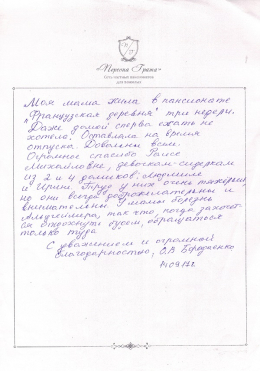 Моя мама жила в пансионате
"Французская деревня" три недели.
Даже домой сперва ехать не
хотела. Оставляла на время
отпуска. Довольны всем.
Огромное спасибо Раисе
Михайловне, девочкам-сиделкам
из 2 и 4 домиков. Людмиле
и Ирине. Труд у них очень тяжёлый,
но они всегда доброжелательны и
внимательны. У мамы болезнь
Альцгеймера, так что, когда захочет-
ся отдохнуть будем, обращаться
только туда.
С уважением и огромной
благодарностью, О.В.